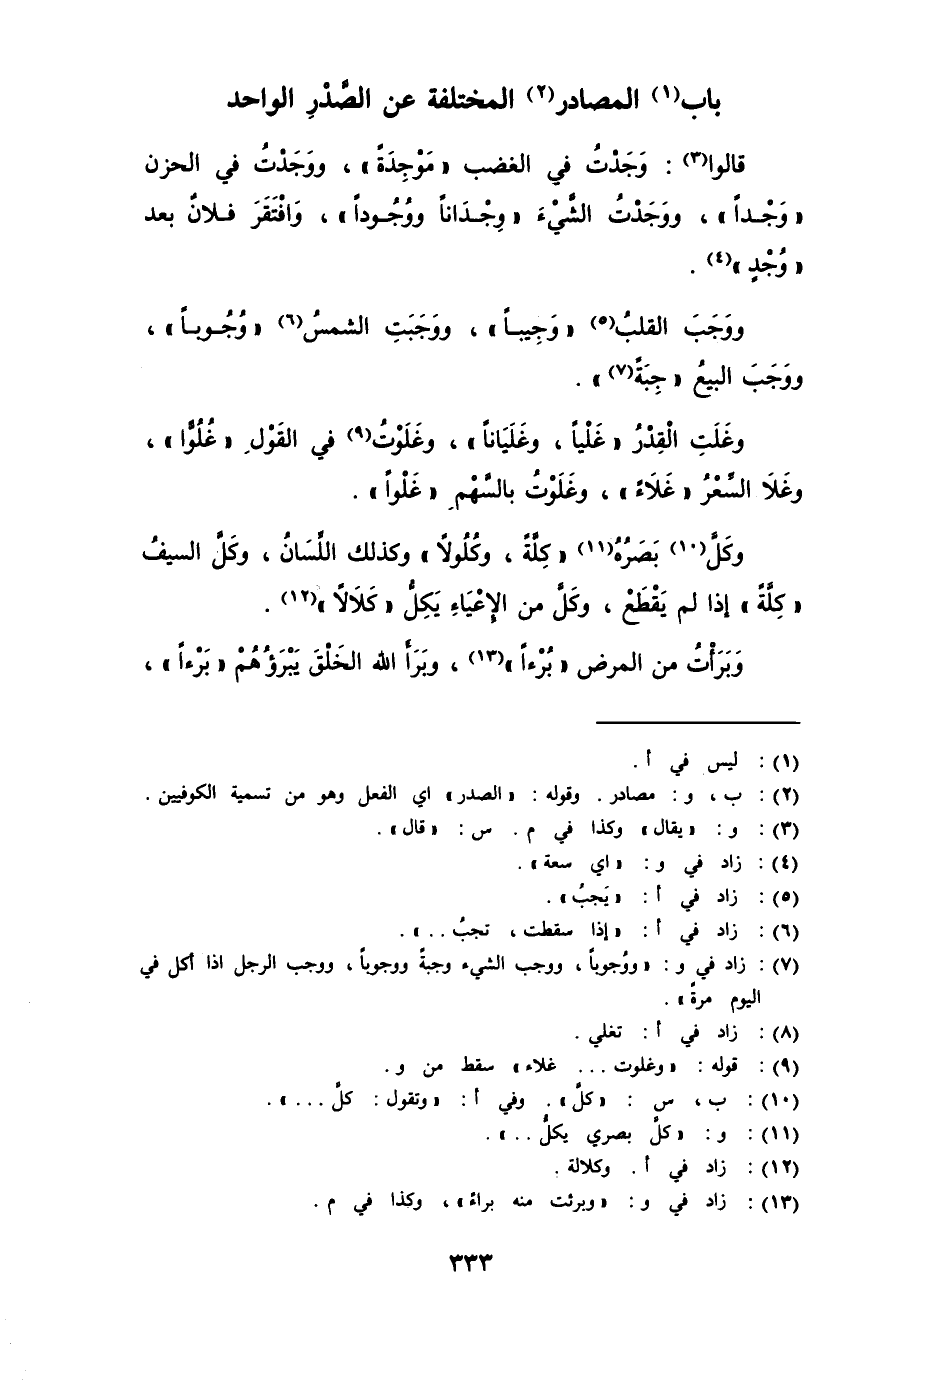 باب(١) المصادر(٢) المختلفة عن الصَّدْرِ الواحد
قالوا(٣) : وَجَدْتُ في الغضب « مَوْجِدَةً » ، ووَجَدْتُ في الحزن
« وَجْـداً » ، ووَجَدْتُ الشَّيْءَ « وِجْـدَاناً ووُجُـوداً » ، وَافْتَقَرَ فـلانٌ بعد
« وُجْدٍ »(٤) .
ووَجَبَ القلبُ(٥) « وَجِيبـاً » ، ووَجَبَتِ الشمسُ(٦) « وُجُـوبـاً » ،
ووَجَبَ البيعُ « جِبَةً(٧) » .
وغَلَتِ الْقِدْرُ « غَلْياً ، وغَلَيَاناً » ، وغَلَوْتُ(٩) في القَوْلِ « غُلُوًّا » ،
وغَلَا السِّعْرُ « غَلَاءً » ، وغَلَوْتُ بالسَّهْمِ « غَلْواً » .
وكَلَّ(١٠) بَصَرُهُ(١١) « كِلَّةً ، وكُلُولًا » وكذلك اللِّسَانُ ، وكَلَّ السيفُ
« كِلَّةً » إذا لم يَقْطَعْ ، وكَلَّ من الإِعْيَاءِ يَكِلُّ « كَلَالًا »(١٢) .
وَبَرَأْتُ من المرض « بُرْءاً »(١٣) ، وبَرَأَ الله الخَلْقَ يَبْرَؤُهُمْ « بَرْءاً » ،
(١) : ليس في أ .
(٢) : ب ، و : مصادر . وقوله : « الصدر » اي الفعل وهو من تسمية الكوفيين .
(٣) : و : « يقال » وكذا في م . س : « قال » .
(٤) : زاد في و : « اي سعة » .
(٥) : زاد في أ : « يَجبُ » .
(٦) : زاد في أ : « إذا سقطت ، تجبُ .. » .
(٧) : زاد في و : « ووُجوباً ، ووجب الشيء وجبةً ووجوباً ، ووجب الرجل اذا أكل في
اليوم مرةً » .
(٨) : زاد في أ : تغلي .
(٩) : قوله : « وغلوت ... غلاء » سقط من و .
(١٠) : ب ، س : « كلَّ » . وفي أ : « وتقول : كلَّ ... » .
(١١) : و : « كلَّ بصري يكلُّ .. » .
(١٢) : زاد في أ . وكلالة .
(١٣) : زاد في و : « وبرئت منه براءً » ، وكذا في م .
٣٣٣